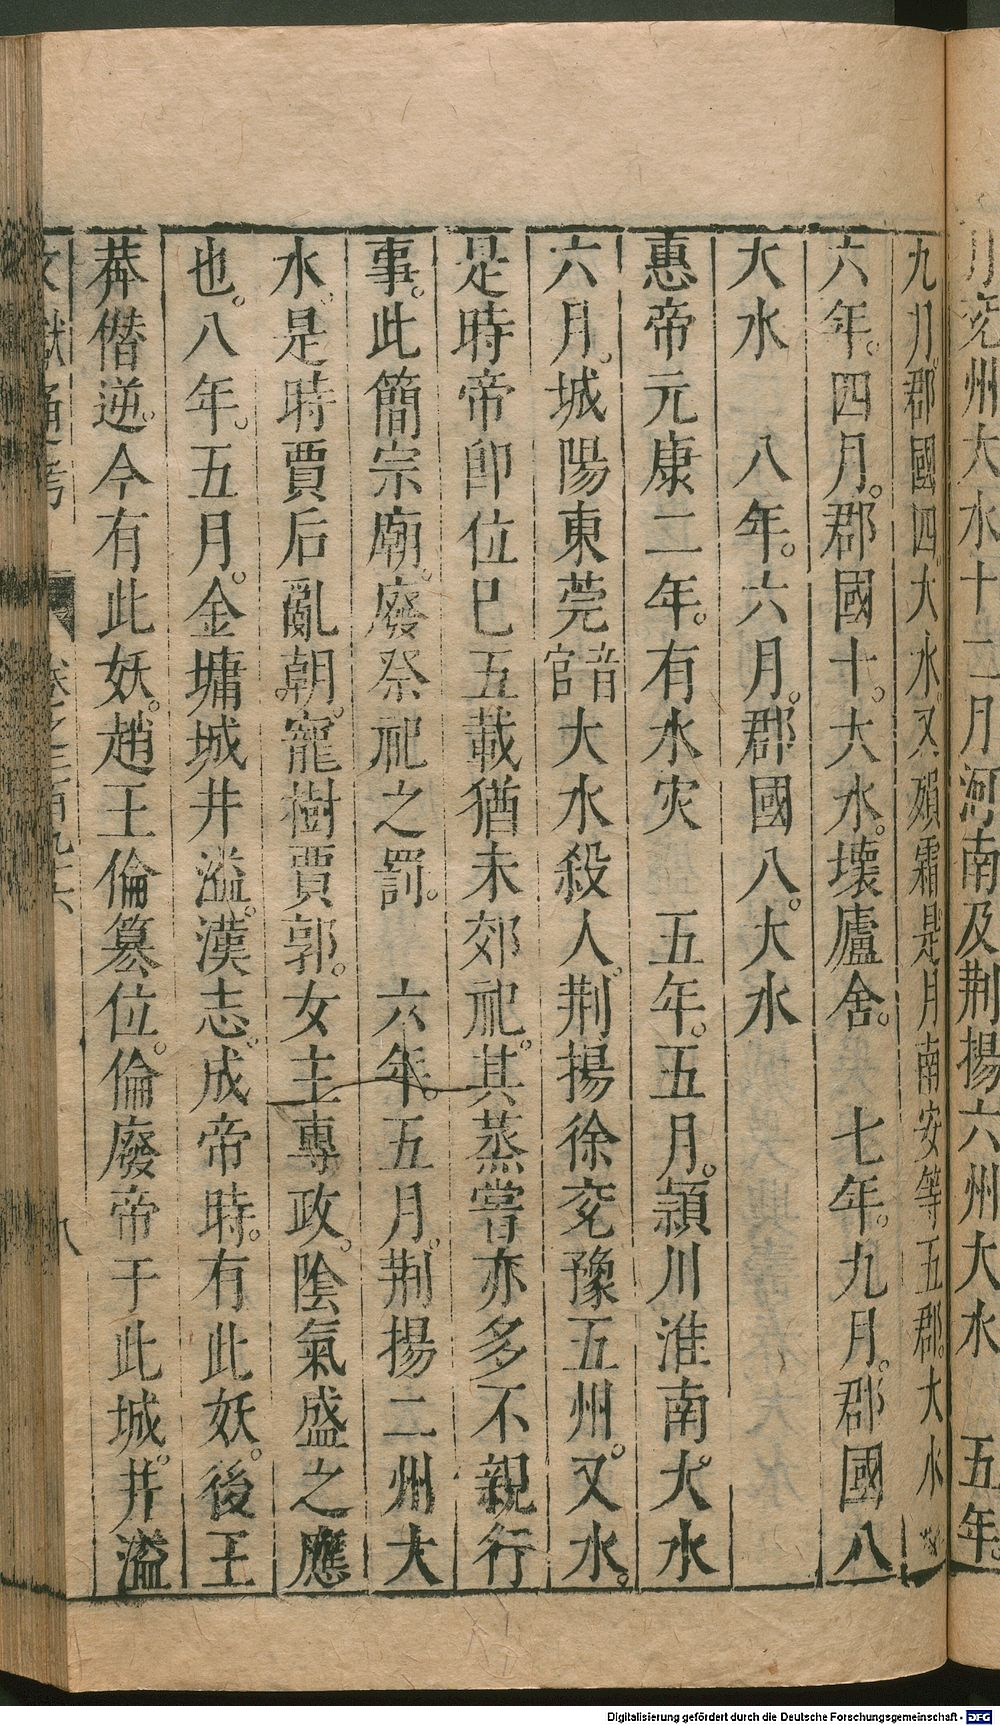 月兖州大水十二月河南及荆揚六州大水　五年。
九月。郡國四。大水。又殞霜是月南安等五郡。大水
六年。四月。郡國十。大水。壞廬舍。　七年。九月。郡國八
大水　八年。六月。郡國八。大水
惠帝元康二年。有水灾　五年。五月。潁川淮南大水
六月。城陽東莞音官大水殺人。荆揚徐兖豫五州。又水。
是時帝卽位巳五載猶未郊祀。其蒸嘗亦多不親行
事。此簡宗廟。廢祭祀之罰。　六年。五月。荆揚二州大
水。是時賈后亂朝。寵樹賈郭。女主專政。陰氣盛之應
也。八年。五月。金墉城井溢。漢志。成帝時。有此妖。後王
莽僭逆。今有此妖。趙王倫篡位。倫廢帝于此城。井溢
文獻通考　卷之二百九十六　八
Digitalisierung gefördert durch die Deutsche Forschungsgemeinschaft - DFG